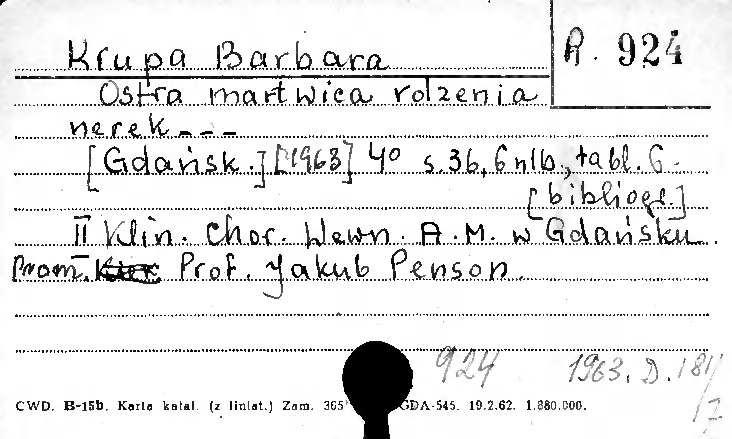 Krupa Barbara
R. 924
Ostra martwica rdzenia
nerek - - -
[Gdańsk.] [1963] 4° s. 36, 6 nlb., tabl. 6.
[bibliogr.]
II Klin. Chor. Wewn. A.M. w Gdańsku.
Prom. Prof. Jakub Penson.
924 1963. D. 184/7
CWD. B-15b. Karta katal. (z liniat.) Zam. 365 GDA-545. 19.2.62. 1.880.000.